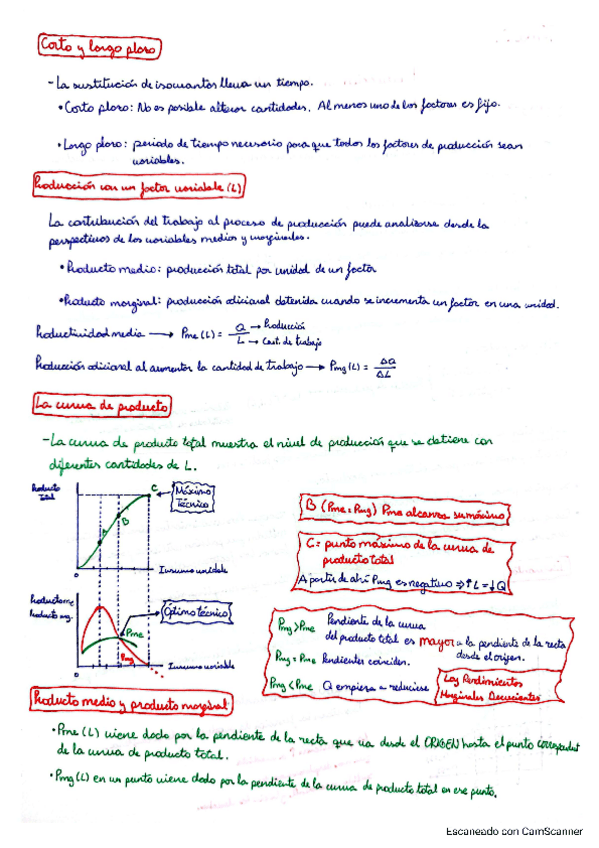 Corto y largo plazo
- La sustitución de isocuantas lleva un tiempo.
• Corto plazo: No es posible alterar cantidades. Al menos uno de los factores es fijo.
• Largo plazo: periodo de tiempo necesario para que todos los factores de producción sean
variables.
Producción con un factor variable (L)
La contribución del trabajo al proceso de producción puede analizarse desde la
perspectivas de las variables medias y marginales.
• Producto medio: producción total por unidad de un factor
• Producto marginal: producción adicional obtenida cuando se incrementa un factor en una unidad.
Productividad media → Pme (L) = Q / L → Producción → Cant. de trabajo
Producción adicional al aumentar la cantidad de trabajo → Pmg (L) = ΔQ / ΔL
La curva de producto
- La curva de producto total muestra el nivel de producción que se obtiene con
diferentes cantidades de L.
Producto
Total
C
Máximo
Técnico
B
A
0
Insumo variable
B (Pme = Pmg) Pme alcanza su máximo
C = punto máximo de la curva de
producto total
A partir de ahí Pmg es negativo ⇒ ↑L = ↓Q
Producto me,
Producto mg.
Óptimo técnico
Pme
Pmg
0
Insumo variable
Pmg > Pme Pendiente de la curva
del producto total es mayor a la pendiente de la recta
desde el origen.
Pmg = Pme Pendientes coinciden.
Pmg < Pme Q empieza a reducirse
Ley Rendimientos
Marginales Decrecientes
Producto medio y producto marginal
• Pme (L) viene dado por la pendiente de la recta que va desde el ORIGEN hasta el punto
de la curva de producto total.
• Pmg (L) en un punto viene dado por la pendiente de la curva de producto total en ese punto.
Escaneado con CamScanner